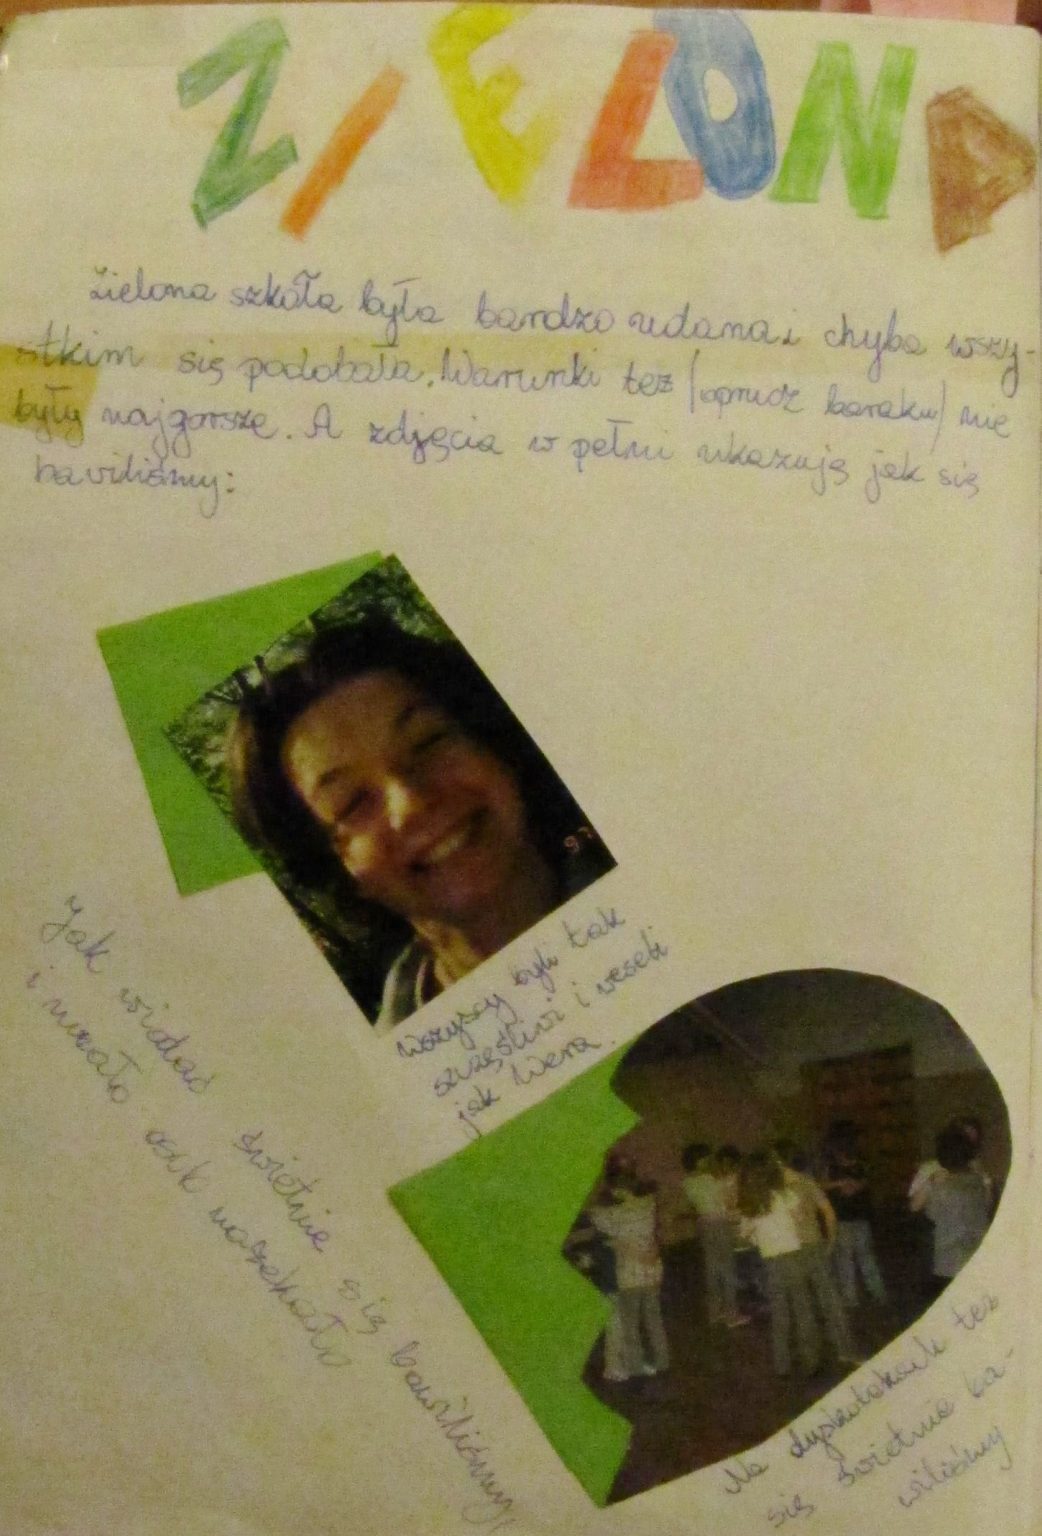 ZIELONA
Zielona szkoła była bardzo udana i chyba wszy-
stkim się podobała. Warunki też (oprucz baraku) nie
były najgorsze. A zdjęcia w pełni ukazują jak się
bawiliśmy:
97
Wszyscy byli tak
szczęśliwi i weseli
jak Wera.
Jak widać świetnie się bawiliśmy
i mało osób narzekało
Na dyskotekach też
się świetnie ba-
wiliśmy